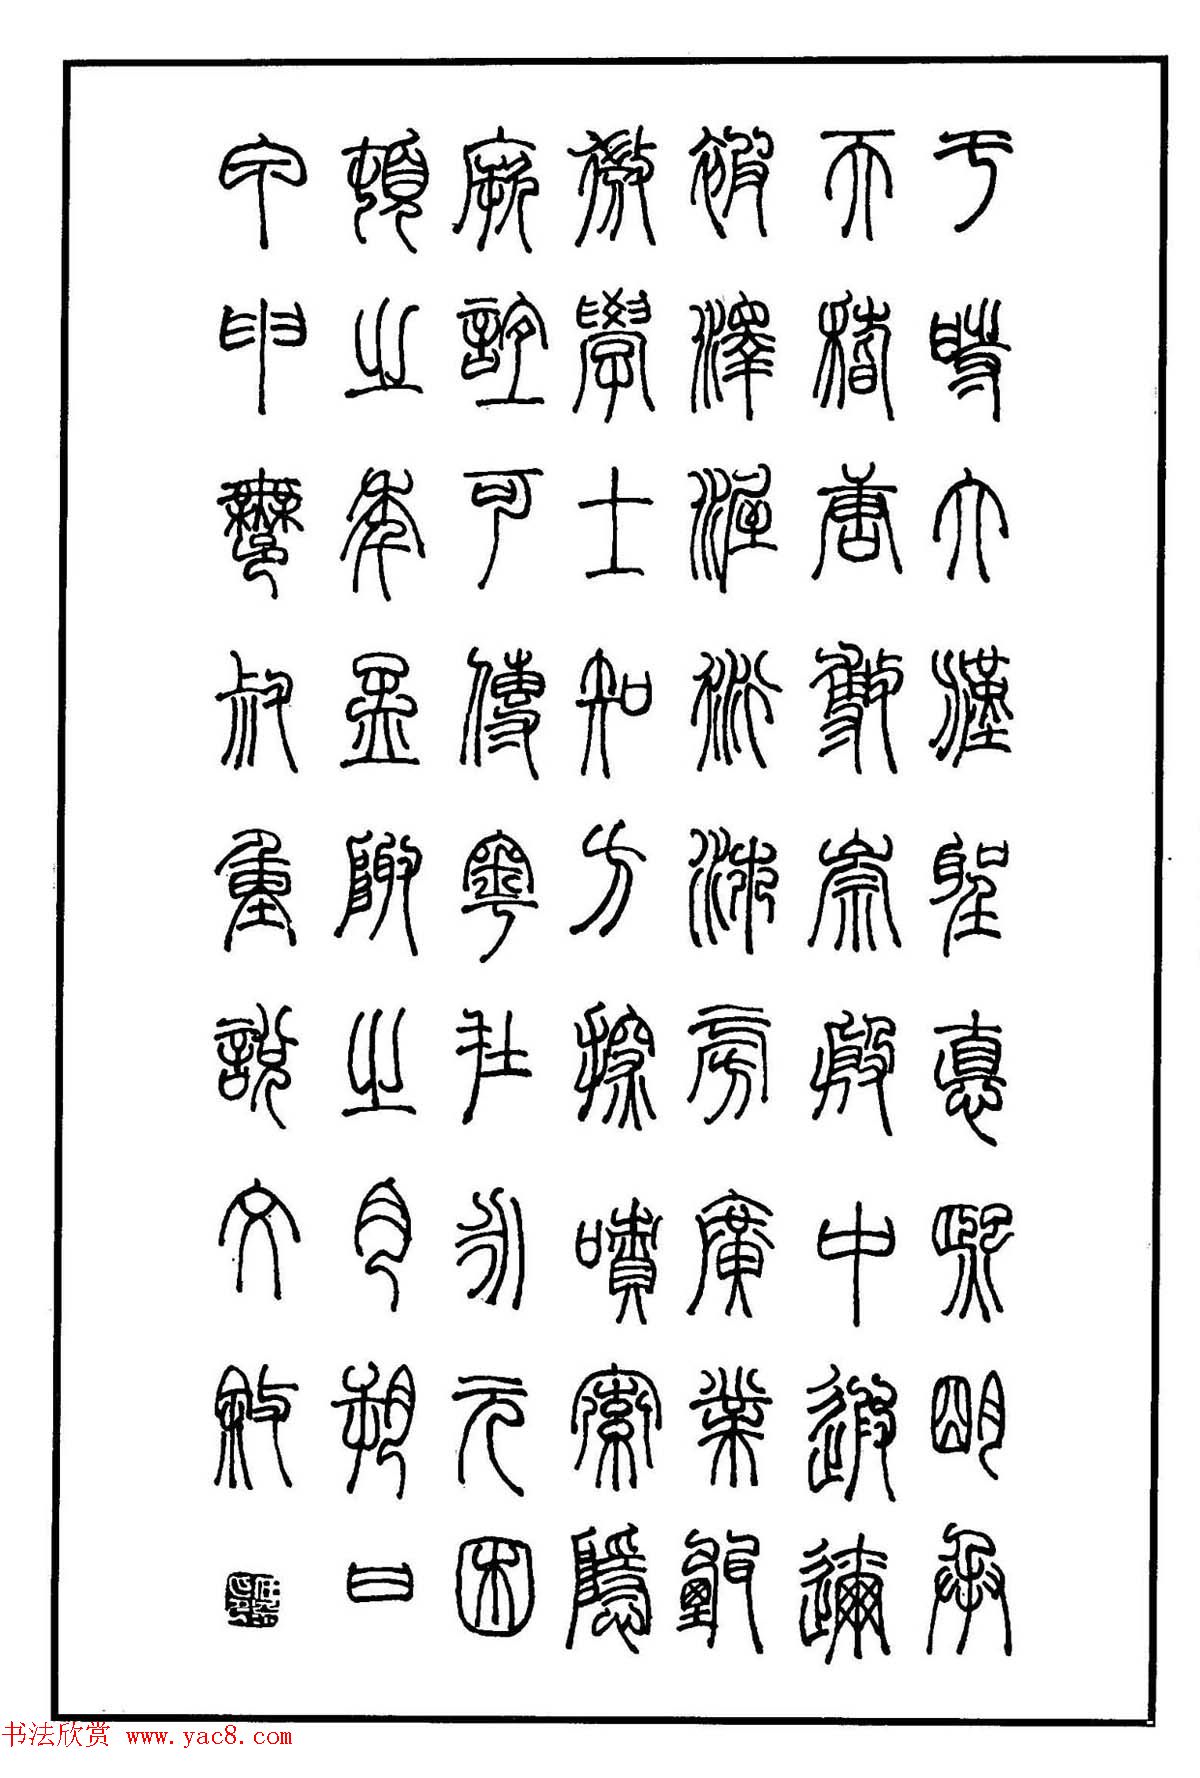 于時大漢聖悳熙明承
天稽唐敷崇殷中遐邇
被澤渥衍沛旁廣業甄
微學士知方探嘖索隱
厥誼可傳粵在永元困
頓之年孟陬之月朔日
甲申鄦叔重說文敘
书法欣赏 www.yac8.com